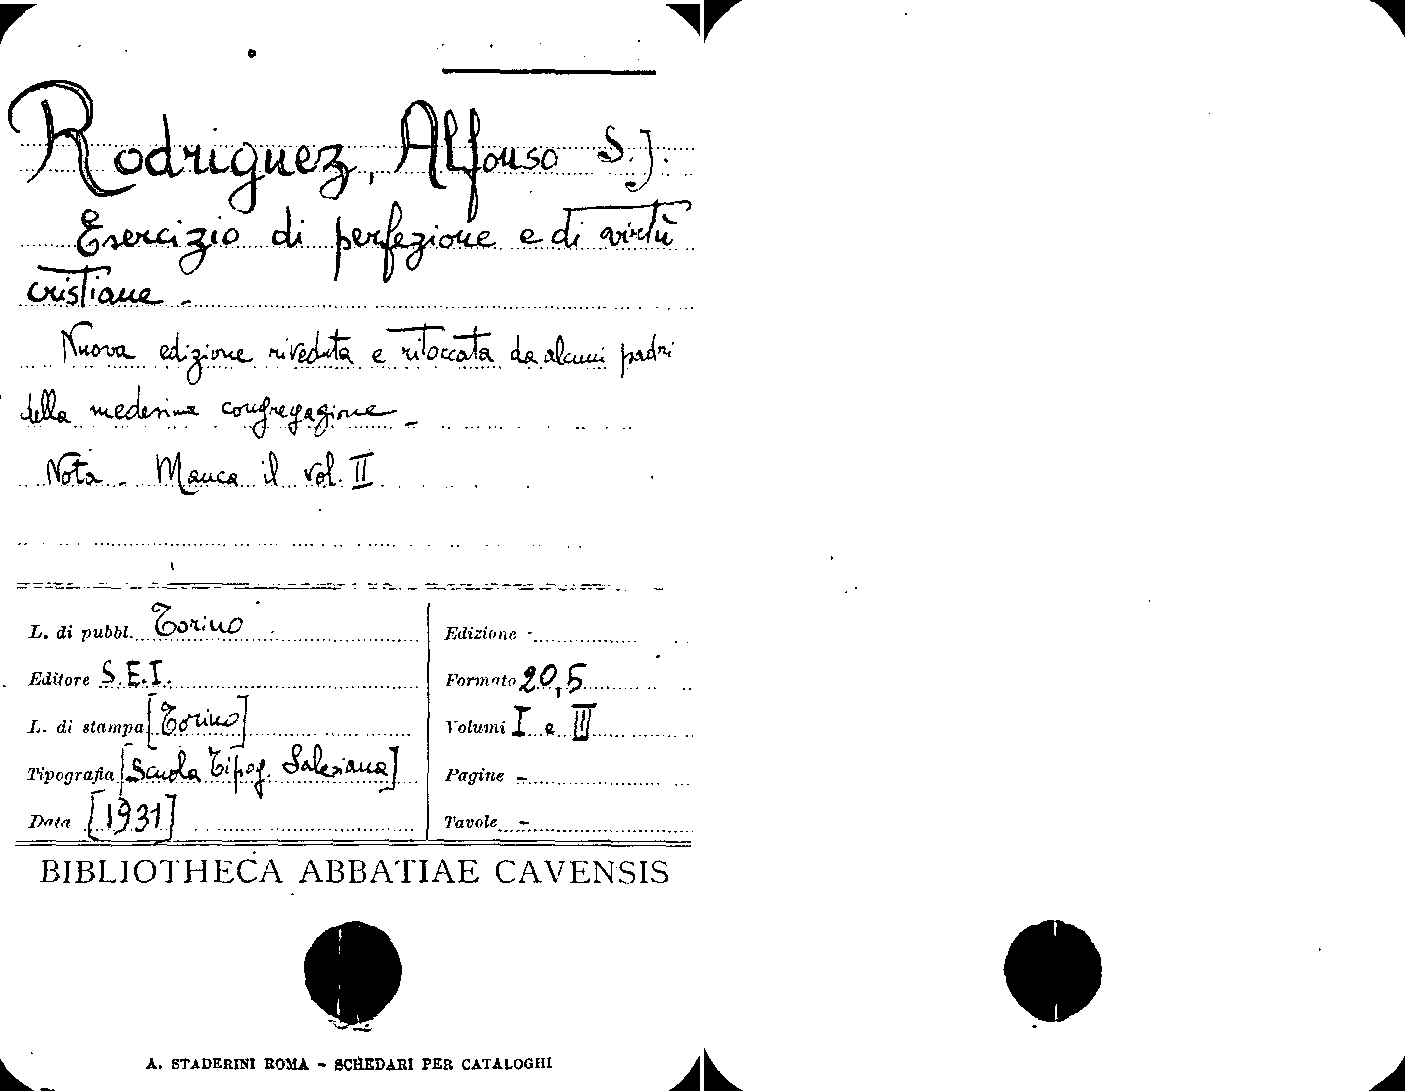 Rodriguez, Alfonso S.J.
Esercizio di perfezione e di virtù
cristiane -
Nuova edizione riveduta e ritoccata da alcuni padri
della medesima congregazione -
Nota - Manca il vol. II
L. di pubbl. Torino
Editore S.E.I.
L. di stampa [Torino]
Tipografia [Scuola Tipog. Salesiana]
Data [1931]
Edizione -
Formato 20,5
Volumi I e III
Pagine -
Tavole -
BIBLIOTHECA ABBATIAE CAVENSIS
A. STADERINI ROMA - SCHEDARI PER CATALOGHI